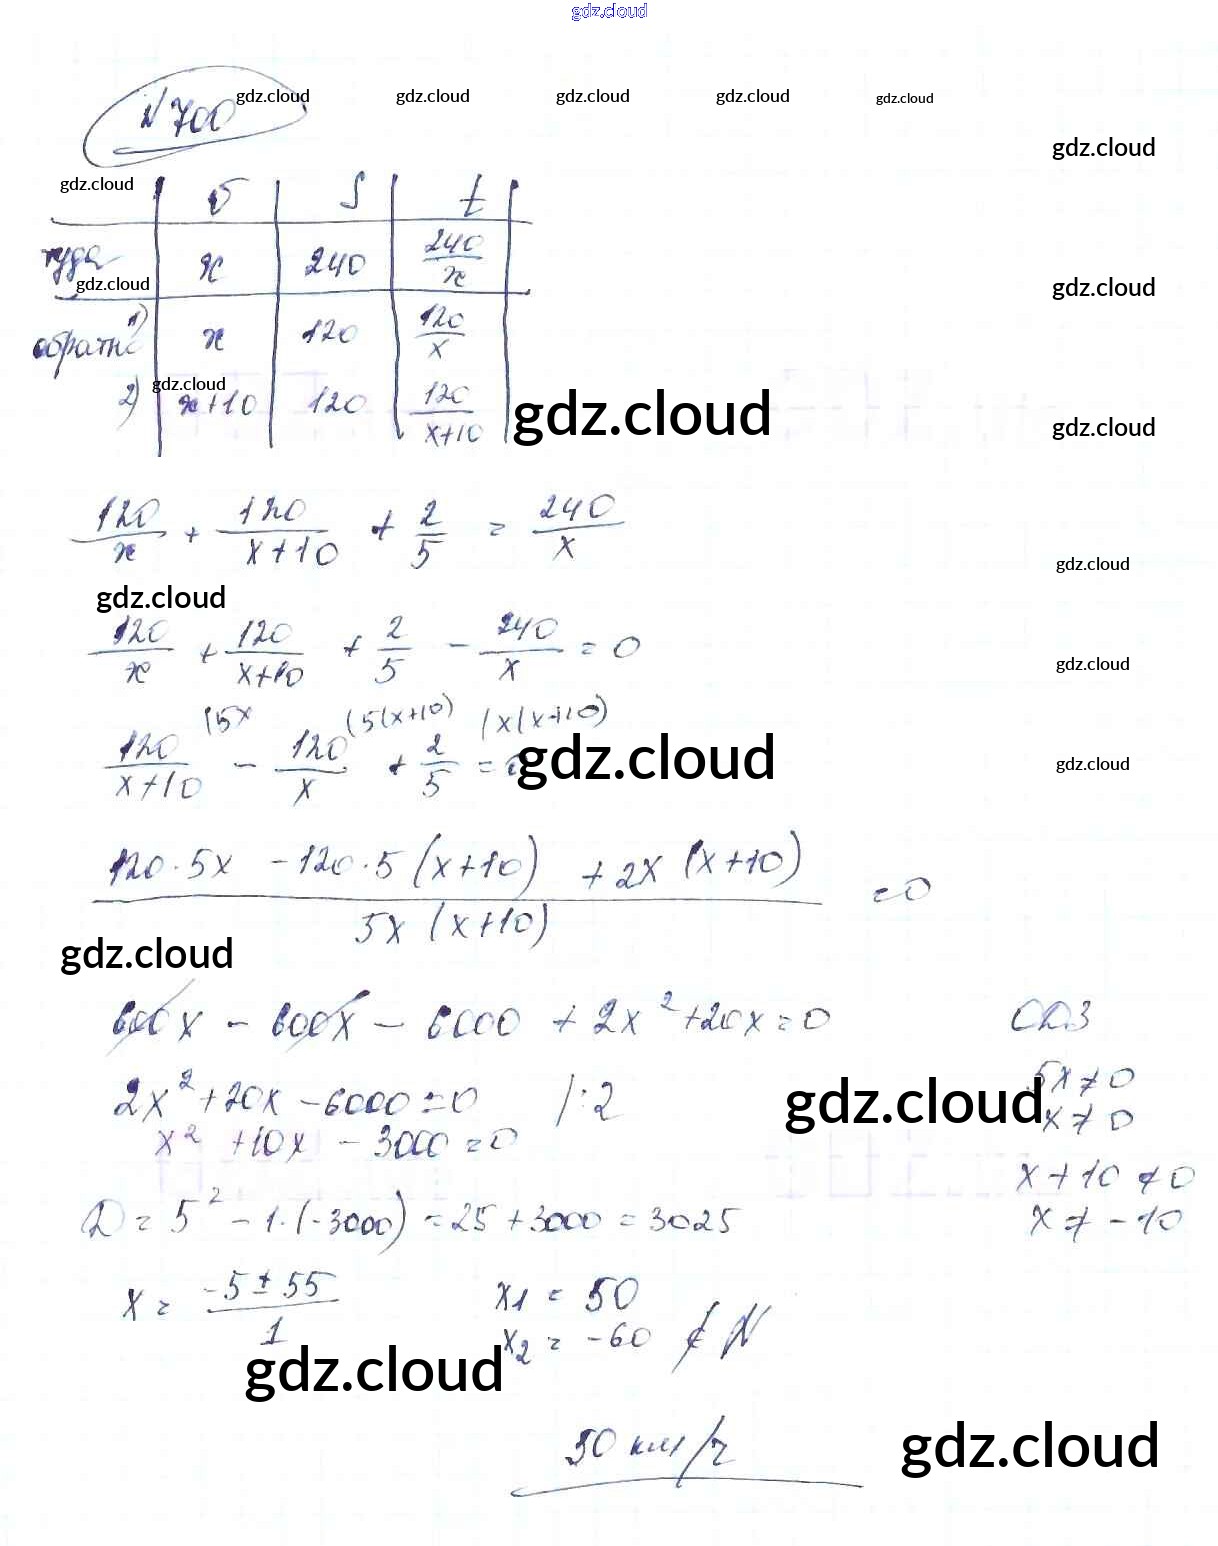 gdz.cloud
N700 gdz.cloud gdz.cloud gdz.cloud gdz.cloud gdz.cloud
gdz.cloud
gdz.cloud
v S t
туда x 240 240/x
gdz.cloud gdz.cloud
обратно 1) x 120 120/x
gdz.cloud
2) x+10 120 120/(x+10)
gdz.cloud gdz.cloud
120/x + 120/(x+10) + 2/5 = 240/x
gdz.cloud
gdz.cloud
120/x + 120/(x+10) + 2/5 - 240/x = 0
gdz.cloud
(5x (5(x+10) (x(x+10)
120/(x+10) - 120/x + 2/5 =
gdz.cloud gdz.cloud
(120·5x - 120·5(x+10) + 2x(x+10))/(5x(x+10)) = 0
gdz.cloud
600x - 600x - 6000 + 2x²+20x=0 ОДЗ
2x²+20x-6000=0 /:2 5x≠0
gdz.cloud
x²+10x-3000=0 x≠0
x+10≠0
D = 5² - 1·(-3000) = 25 + 3000 = 3025 x≠-10
x = (-5±55)/1 x1 = 50
x2 = -60 ∉ N
gdz.cloud
50 км/ч
gdz.cloud